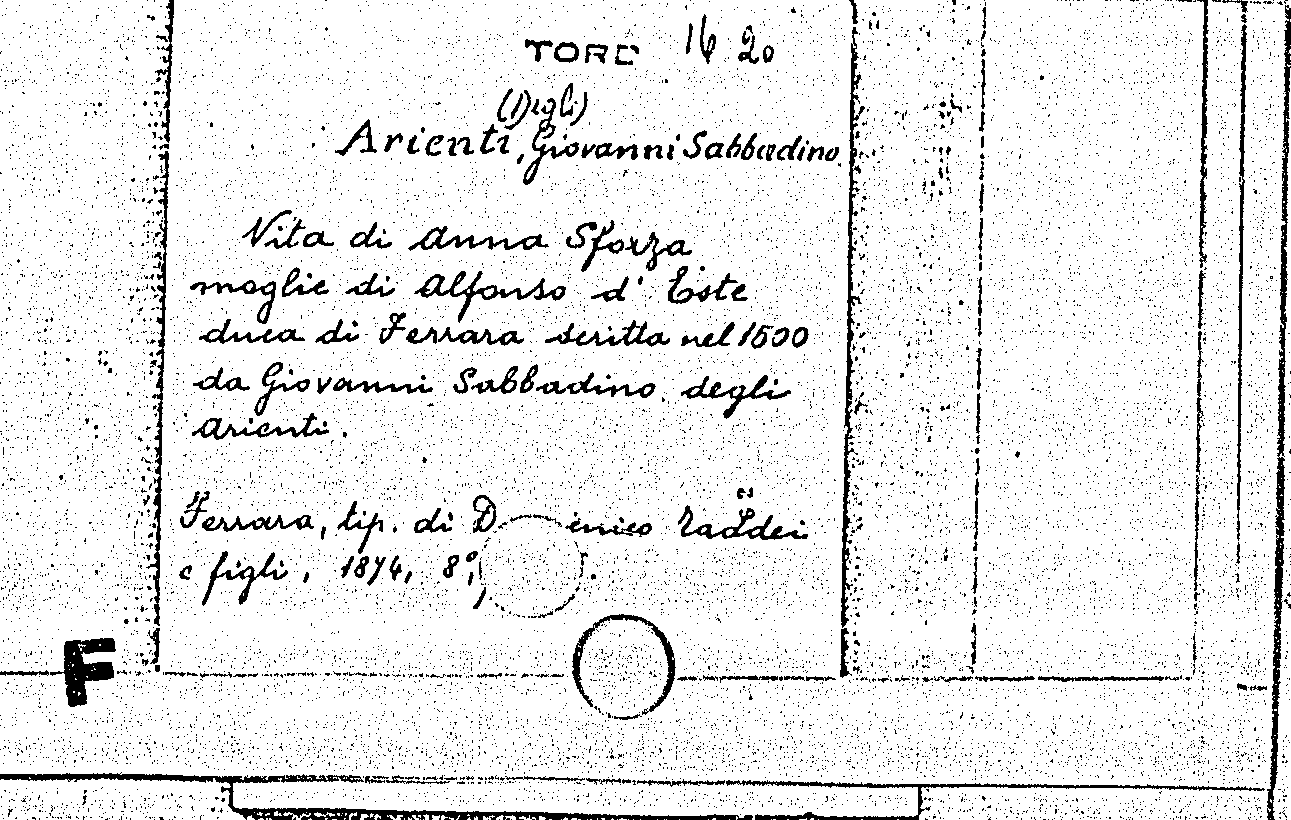 TORD 16 20
(Degli)
Arienti, Giovanni Sabbadino
Vita di Anna Sforza
moglie di Alfonso d' Este
duca di Ferrara scritta nel 1500
da Giovanni Sabbadino degli
Arienti.
Ferrara, tip. di D enico Taddei
e figli, 1874, 8°,
F